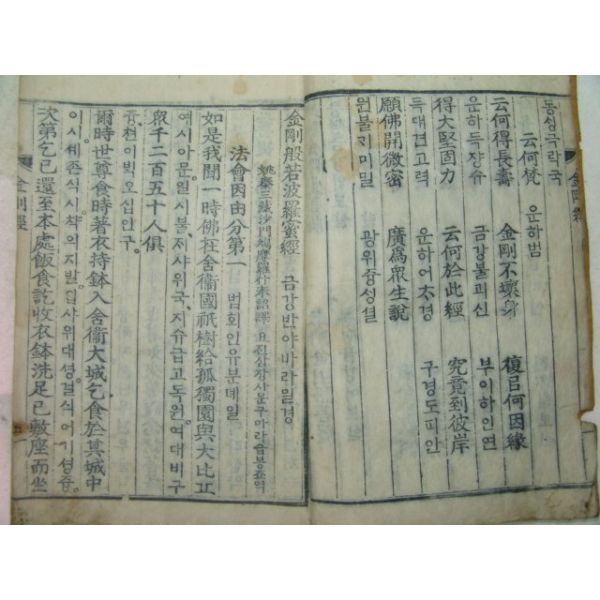 동싱극락국
云何梵 운하범
云何得長壽 金剛不壞身 復㠯何因緣
운하득쟝슈 금강불괴신 부이하인연
得大堅固力 云何於此經 究竟到彼岸
득대견고력 운하어ᄎᆞ경 구경도피안
願佛開微密 廣爲衆生說
원불기미밀 광위즁싱셜
金剛般若波羅蜜經 금강반야바라밀경
姚秦三藏沙門鳩摩羅什奉詔譯 요진삼장사문구마라습봉죠역
法會因由分第一 법회인유분뎨일
如是我聞一時佛在舍衛國祇樹給孤獨園與大比丘
여시아문일시불지샤위국, 지슈급고독원, 여대비구
衆千二百五十人俱
즁쳔이빅오십인구,
爾時世尊食時著衣持鉢入舍衛大城乞食於其城中
이시, 셰존식시, 착의지발, 입샤위대셩, 걸식어기셩즁,
次第乞已還至本處飯食訖收衣鉢洗足已敷座而坐
金剛經